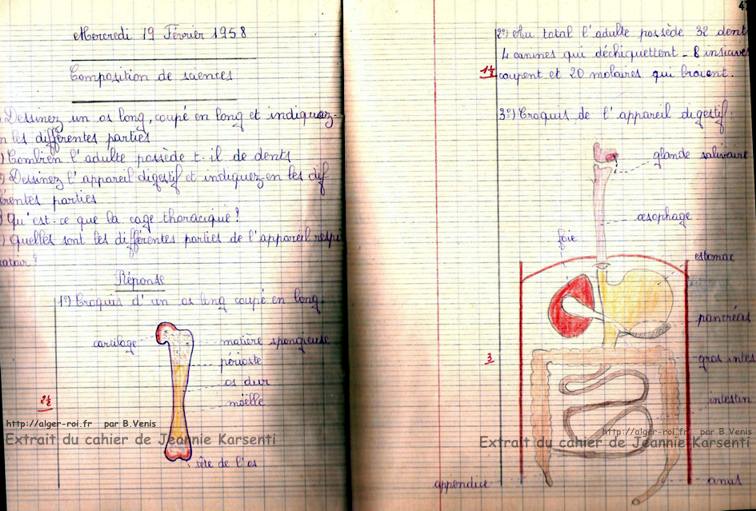 Mercredi 19 Février 1958
Composition de sciences
Dessinez un os long, coupé en long et indiquez-
en les différentes parties
) Combien l'adulte possède t-il de dents
) Dessinez l'appareil digestif et indiquez en les dif
férentes parties
) Qu'est-ce que la cage thoracique?
) Quelles sont les différentes parties de l'appareil respi
ratoir?
Réponse
1°) Croquis d'un os long coupé en long
cartilage
matière spongieuse
périoste
os dur
moëlle
2½
tête de l'os
http://alger-roi.fr par B.Venis
Extrait du cahier de Jeannie Karsenti
2°) Au total l'adulte possède 32 dent
4 canines qui déchiquettent - 8 incisives
1½
coupent et 20 molaires qui broient.
3°) Croquis de l'appareil digestif:
glande salivaire
œsophage
foie
estomac
pancréas
gros intes
3
intestin
http://alger-roi.fr par B.Venis
Extrait du cahier de Jeannie Karsenti
appendice
anus